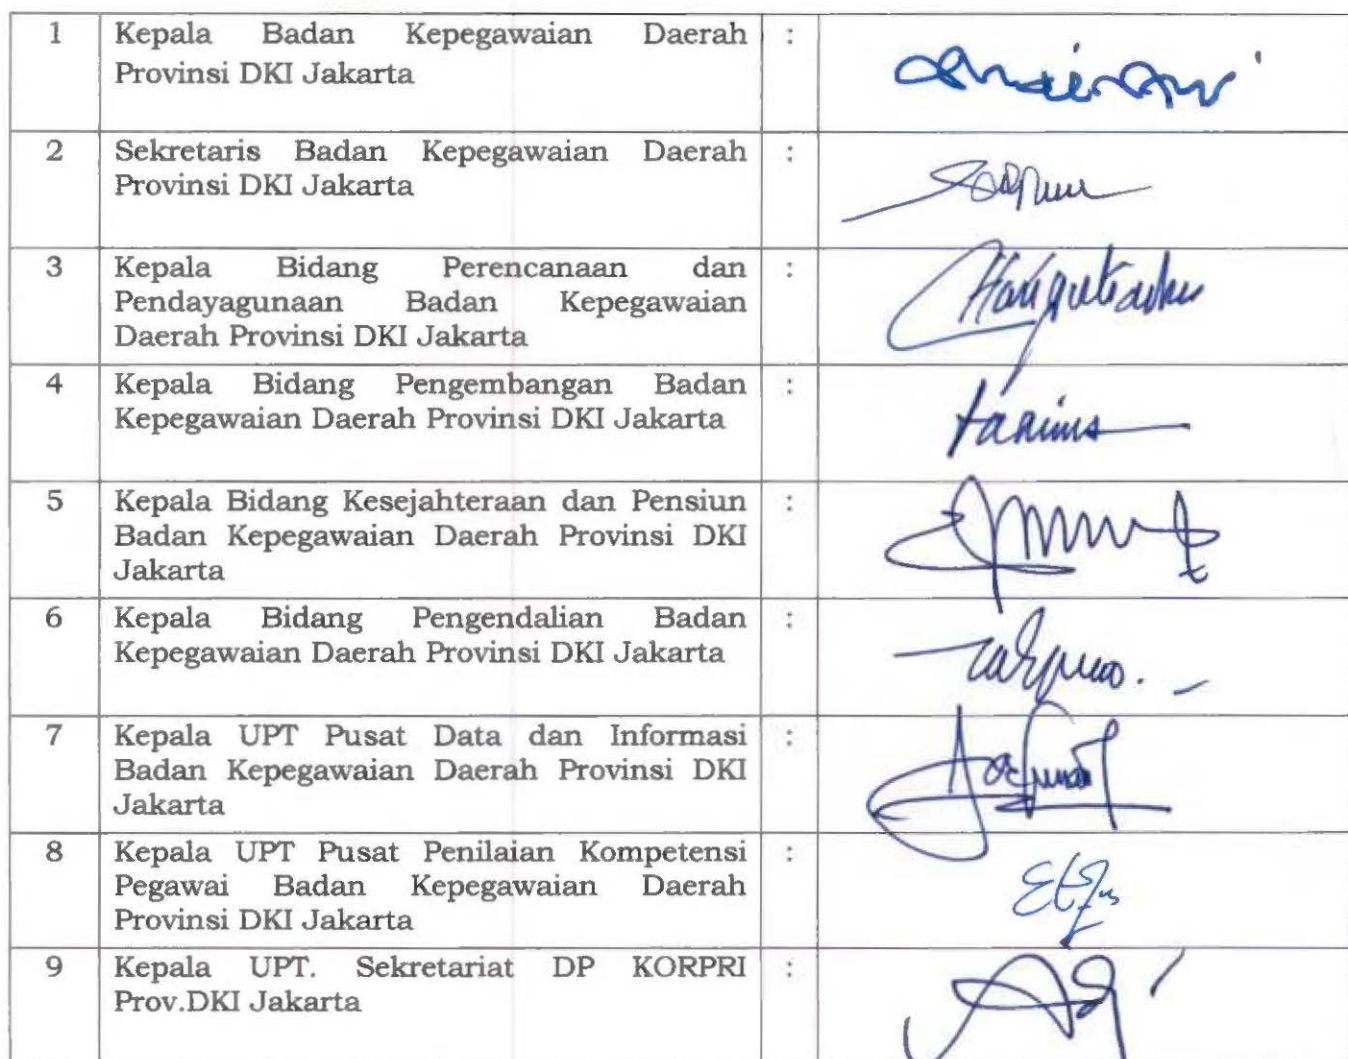 1 Kepala Badan Kepegawaian Daerah :
Provinsi DKI Jakarta
2 Sekretaris Badan Kepegawaian Daerah :
Provinsi DKI Jakarta
3 Kepala Bidang Perencanaan dan :
Pendayagunaan Badan Kepegawaian
Daerah Provinsi DKI Jakarta
4 Kepala Bidang Pengembangan Badan :
Kepegawaian Daerah Provinsi DKI Jakarta
5 Kepala Bidang Kesejahteraan dan Pensiun :
Badan Kepegawaian Daerah Provinsi DKI
Jakarta
6 Kepala Bidang Pengendalian Badan :
Kepegawaian Daerah Provinsi DKI Jakarta
7 Kepala UPT Pusat Data dan Informasi :
Badan Kepegawaian Daerah Provinsi DKI
Jakarta
8 Kepala UPT Pusat Penilaian Kompetensi :
Pegawai Badan Kepegawaian Daerah
Provinsi DKI Jakarta
9 Kepala UPT. Sekretariat DP KORPRI :
Prov.DKI Jakarta